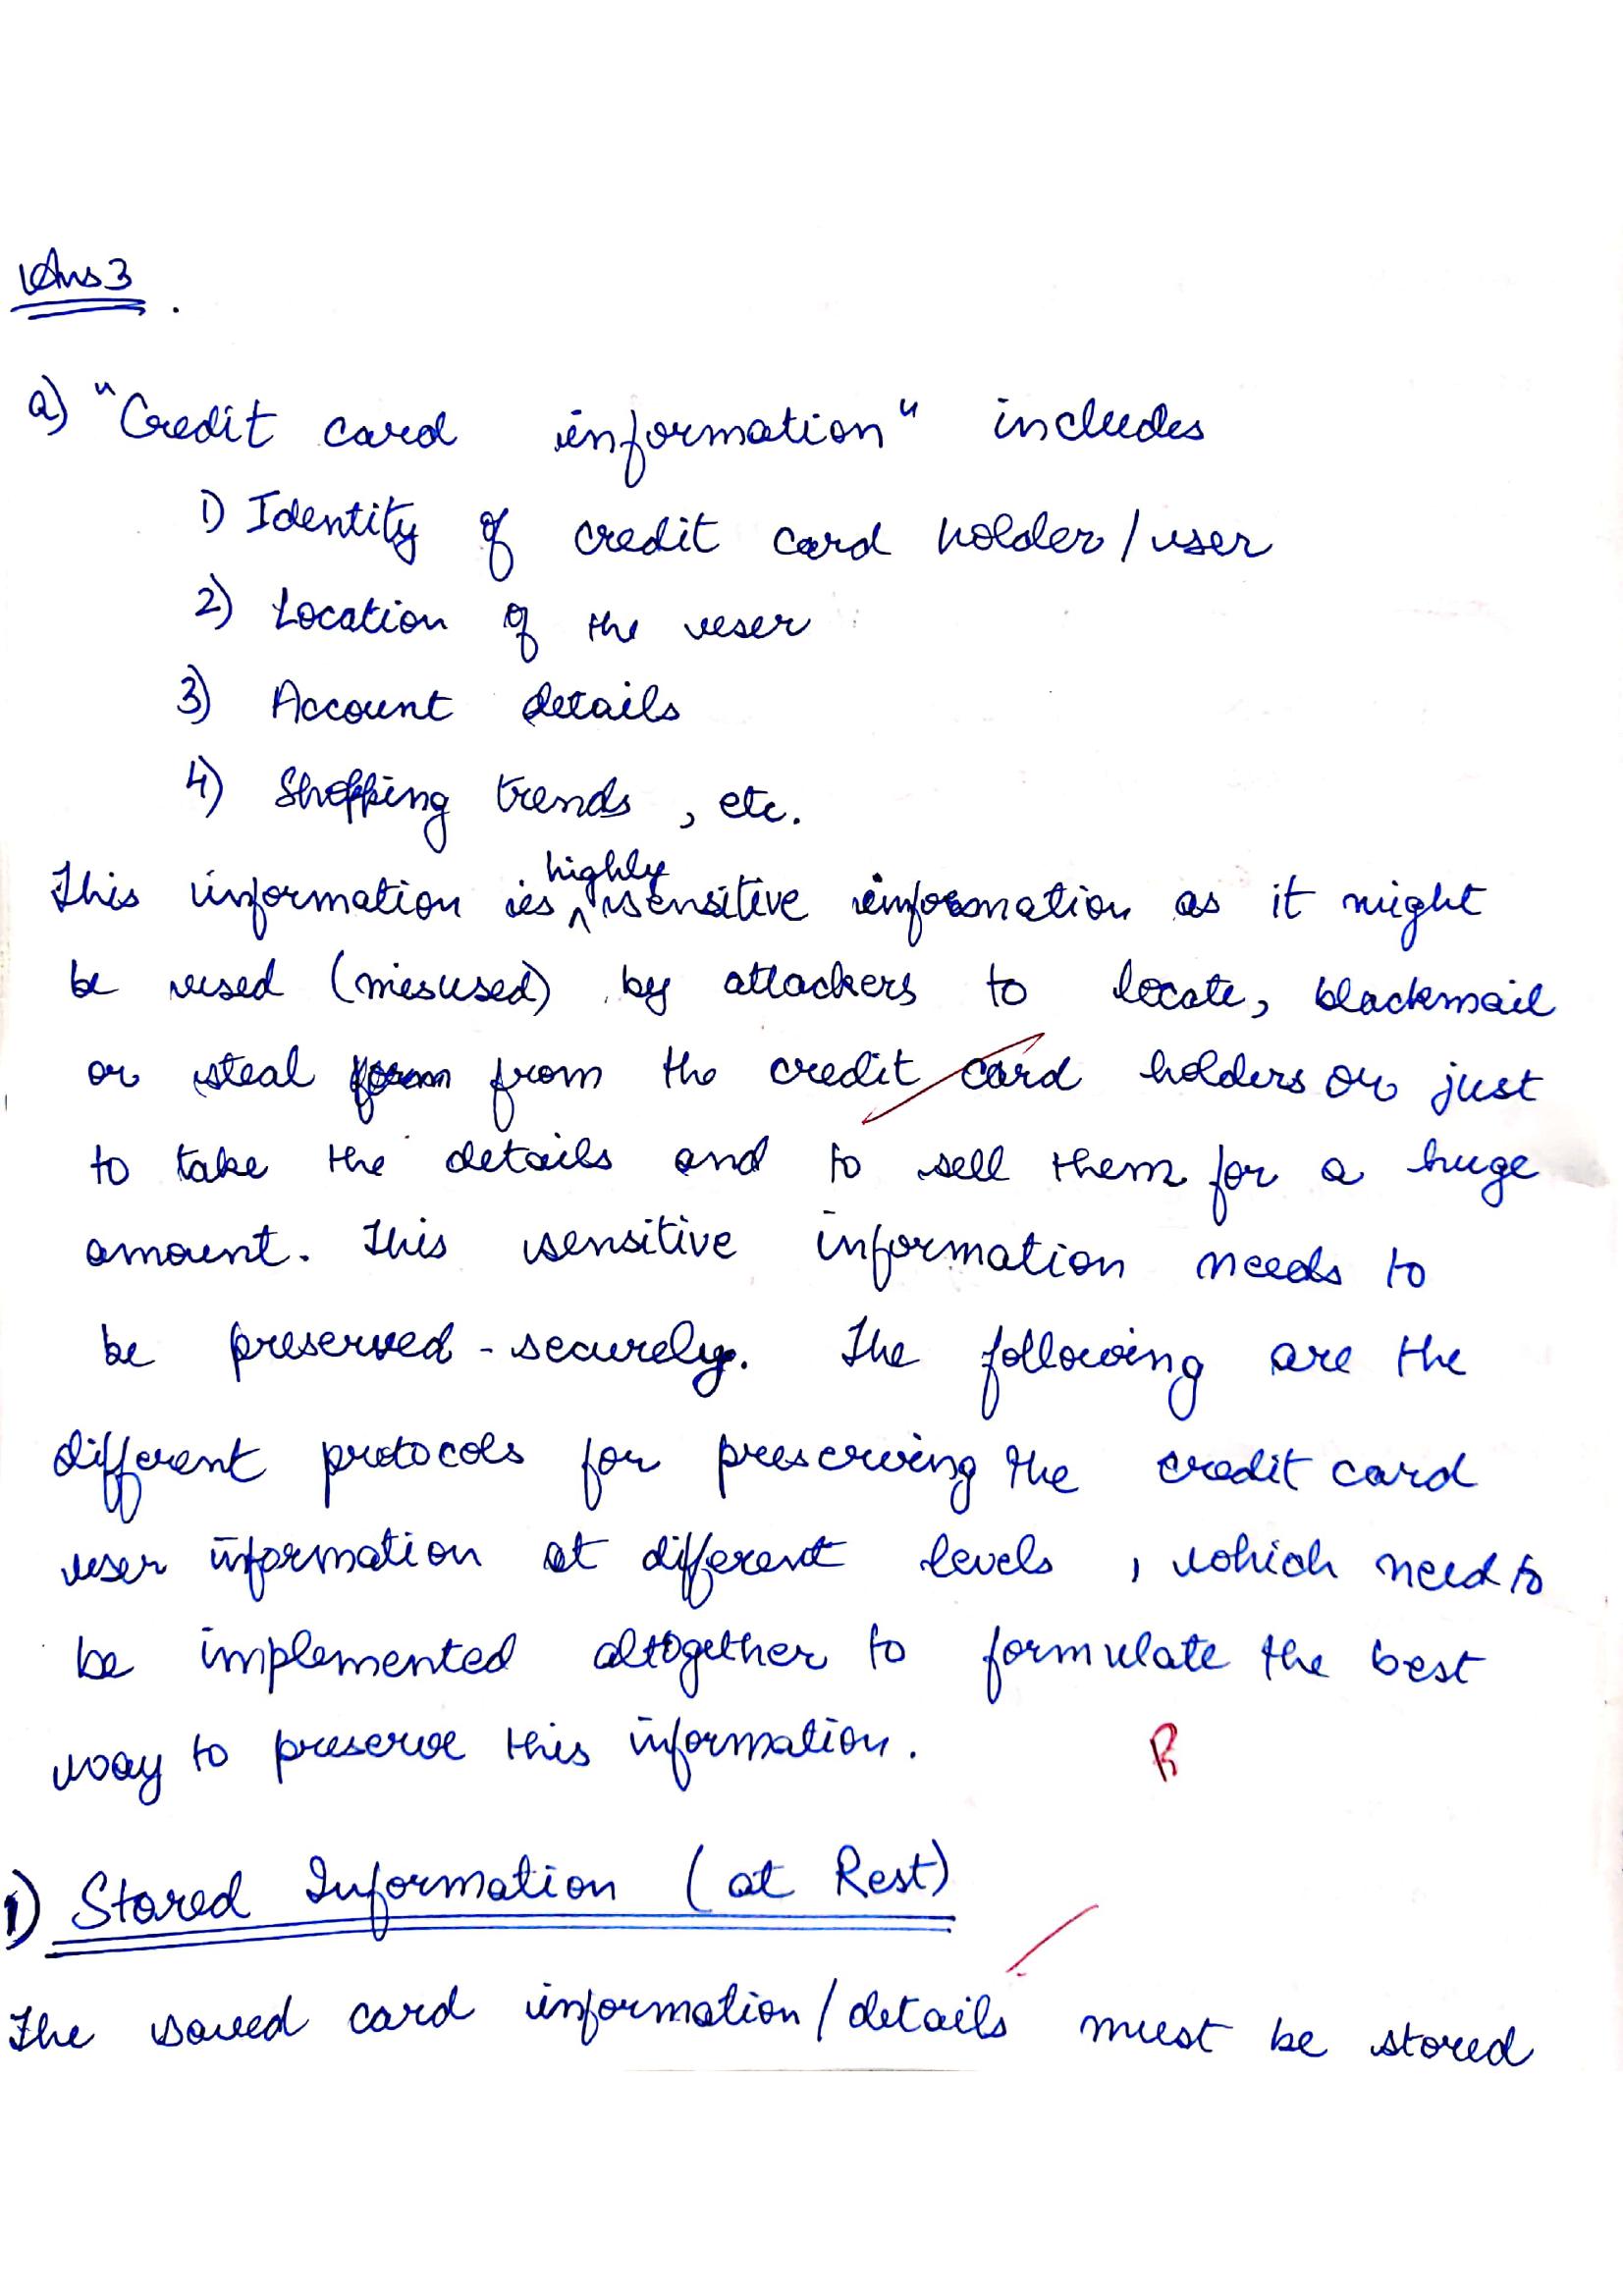 Ans 3.
a) "Credit card information" includes
1) Identity of credit card holder / user
2) Location of the user
3) Account details
4) Shopping trends, etc.
This information is highly sensitive information as it might
be used (misused) by attackers to locate, blackmail
or steal from the credit card holders or just
to take the details and to sell them for a huge
amount. This sensitive information needs to
be preserved - securely. The following are the
different protocols for preserving the credit card
user information at different levels, which need to
be implemented altogether to formulate the best
way to preserve this information.
1) Stored Information (at Rest)
The saved card information / details must be stored